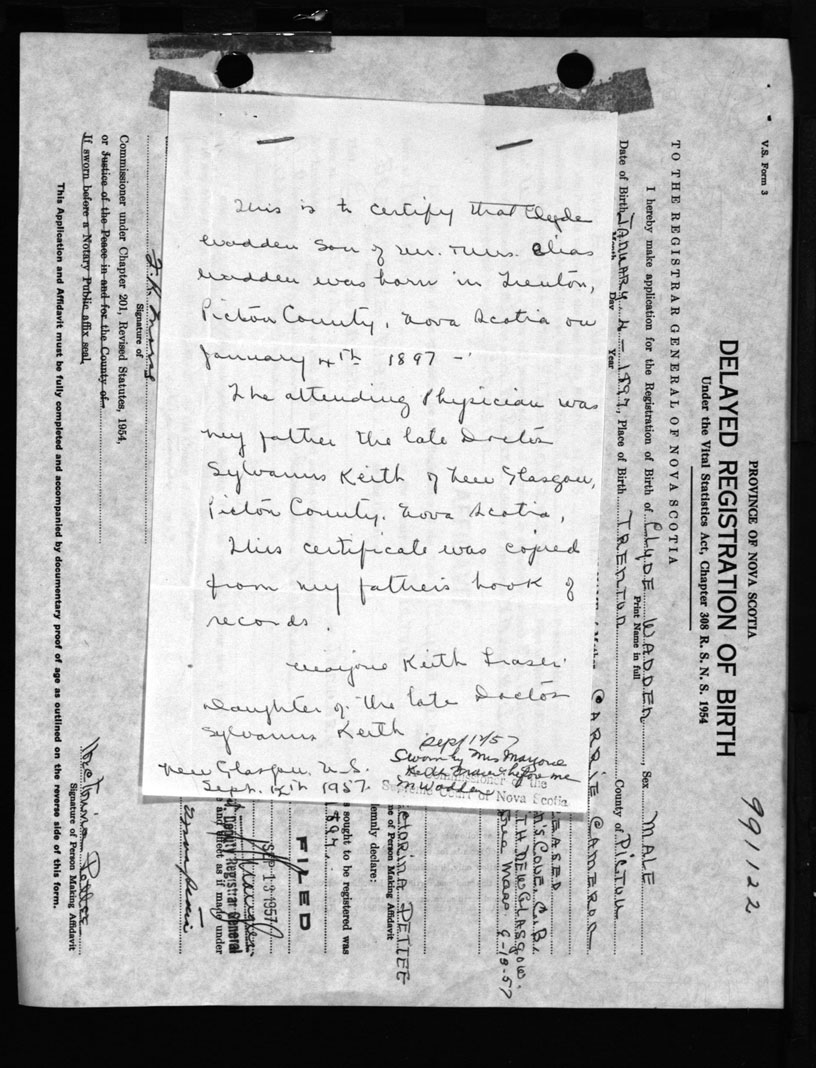 This is to certify that Clyde
Wadden Son of Mr. & Mrs. Elias
Wadden was born in Trenton,
Pictou County, Nova Scotia on
January 4th 1897 -
The attending Physician was
my father the late Doctor
Sylvanus Keith of New Glasgow,
Pictou County, Nova Scotia,
This certificate was copied
from my father's book of
records.
Marjorie Keith Fraser.
Daughter of the late Doctor
Sylvanus Keith
New Glasgow, N.S.
Sept. 12th 1957.
Sept 12/57
Sworn by Mrs Marjorie
Keith Fraser before me
Wadden
Commissioner of the
Supreme Court of Nova Scotia
V.S. Form 3
991122
PROVINCE OF NOVA SCOTIA
DELAYED REGISTRATION OF BIRTH
Under the Vital Statistics Act, Chapter 308 R. S. N. S. 1954
TO THE REGISTRAR GENERAL OF NOVA SCOTIA
I hereby make application for the Registration of Birth of CLYDE WADDEN, Sex MALE
Print Name in full
Date of Birth JANUARY 4 - 1897, Place of Birth TRENTON County of PICTOU
Month Day Year
CARRIE CAMERON
EASED
COVE, C.B.
TH NEW GLASGOW.
Mass 9-13-57
CTORINA POTTER
me of Person Making Affidavit
emnly declare:
s sought to be registered was
1897.
FILED
SEP 13 1957
Deputy Registrar General
e and effect as if made under
Signature of
Commissioner under Chapter 201, Revised Statutes, 1954,
or Justice of the Peace in and for the County of
If sworn before a Notary Public affix seal.
Victorina Potter
Signature of Person Making Affidavit
This Application and Affidavit must be fully completed and accompanied by documentary proof of age as outlined on the reverse side of this form.